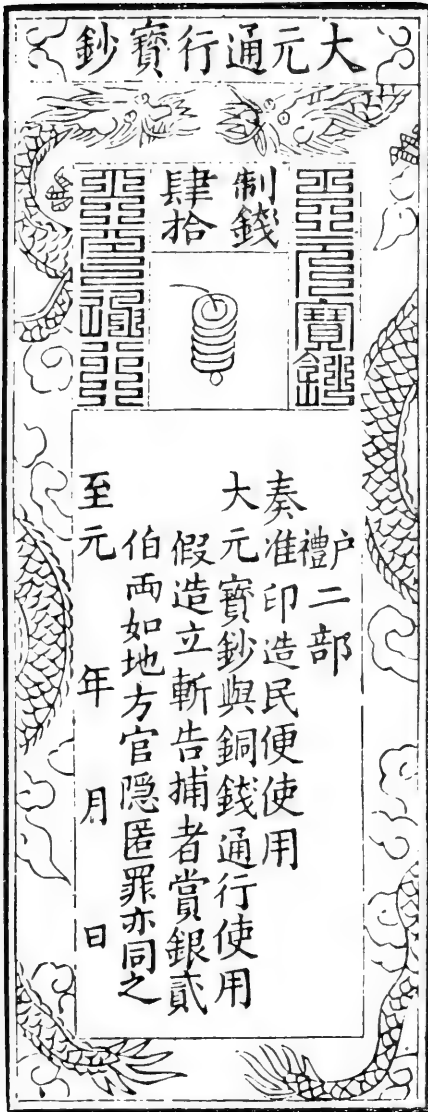 大元通行寶鈔
制錢
肆拾
戶禮二部
奏准印造民便使用
大元寶鈔與銅錢通行使用
假造立斬告捕者賞銀貳
伯両如地方官隠匿罪亦同之
至元年月日